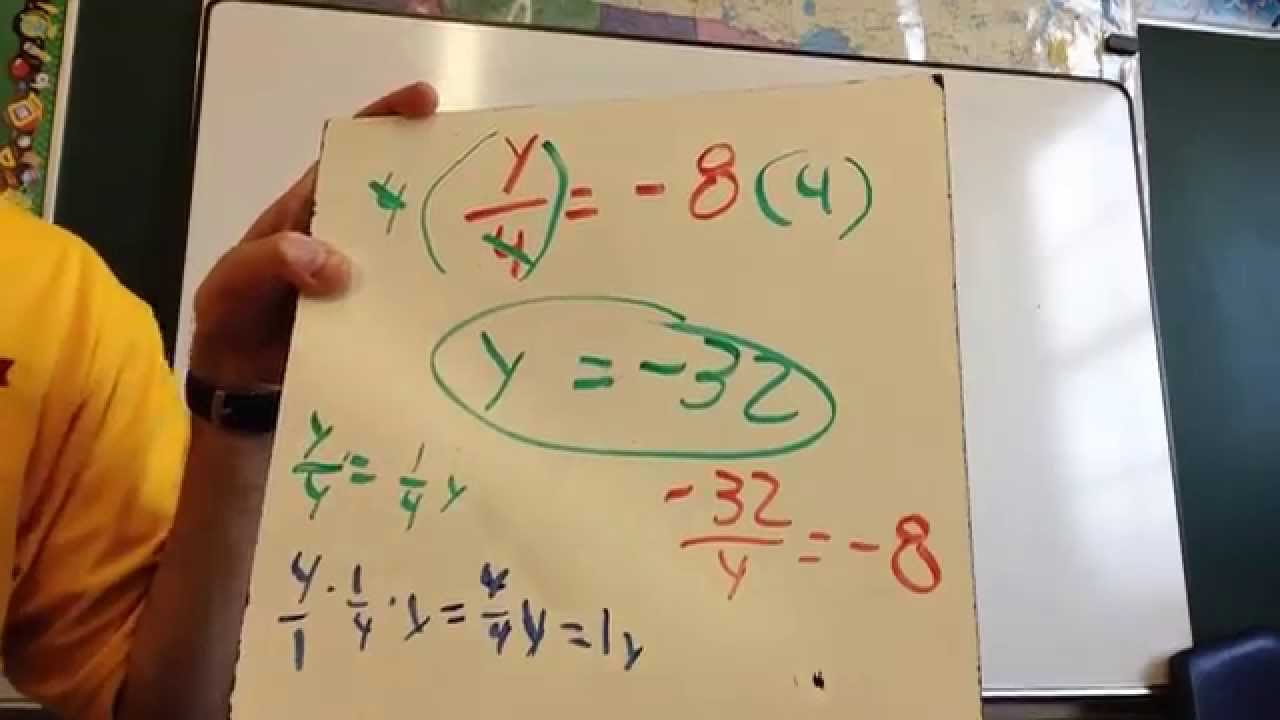 4(y/4) = -8(4)
y = -32
y/4 = 1/4 y
-32/4 = -8
4/1 · 1/4 · y = 4/4 y = 1y